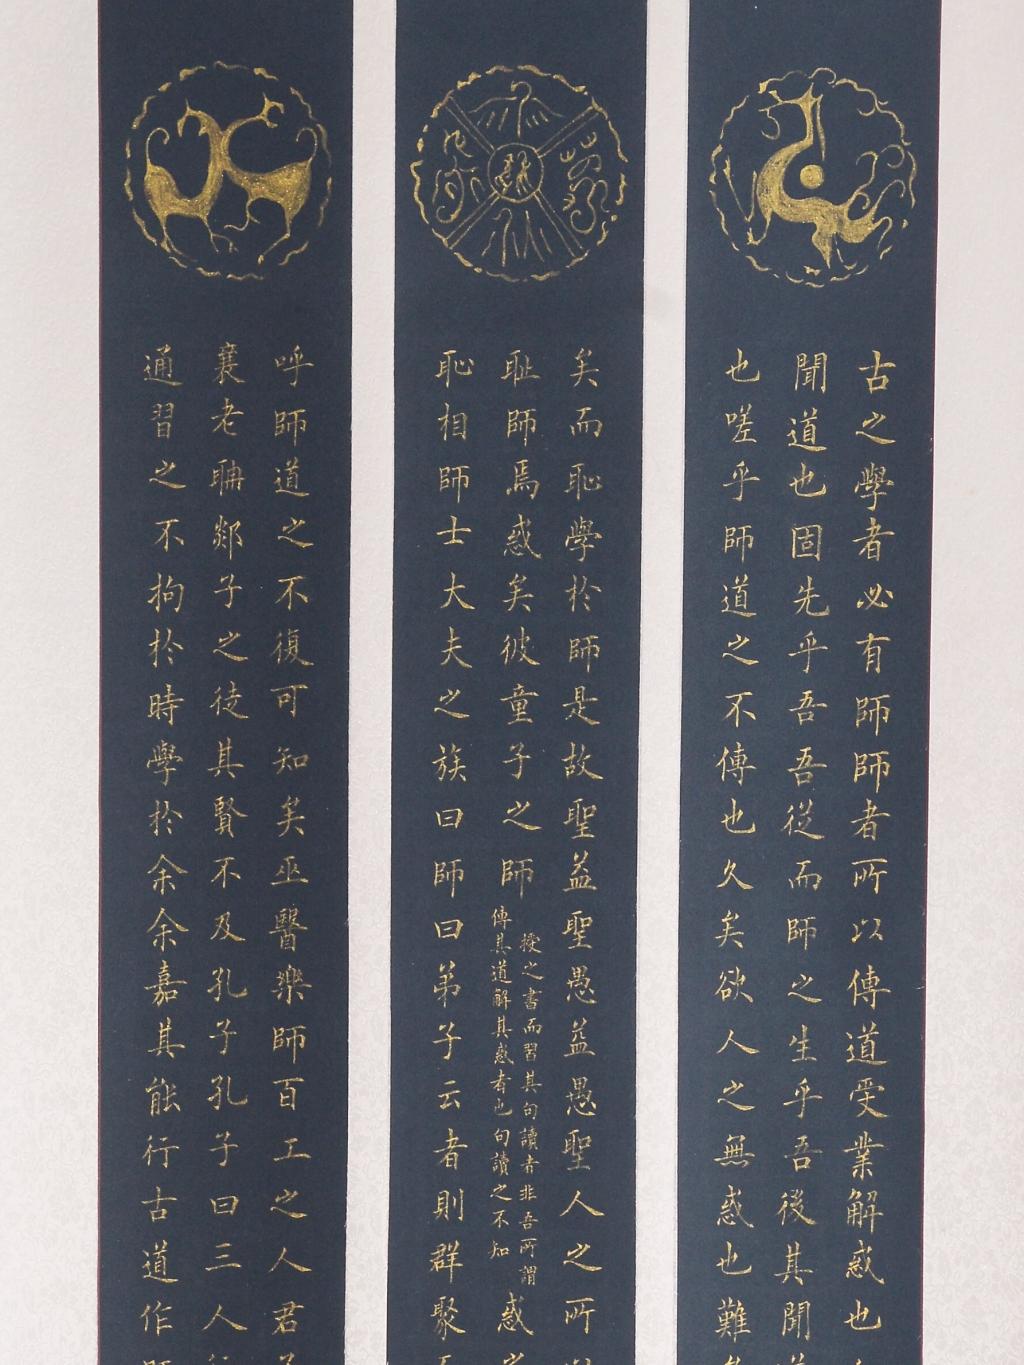 古之學者必有師師者所以傳道受業解惑也
聞道也固先乎吾吾從而師之生乎吾後其聞
也嗟乎師道之不傳也久矣欲人之無惑也難
矣而恥學於師是故聖益聖愚益愚聖人之所
耻師焉惑矣彼童子之師
授之書而習其句讀者非吾所謂
傳其道解其惑者也句讀之不知
惑
恥相師士大夫之族曰師曰弟子云者則群聚
呼師道之不復可知矣巫醫樂師百工之人君
襄老聃郯子之徒其賢不及孔子孔子曰三人
通習之不拘於時學於余余嘉其能行古道作